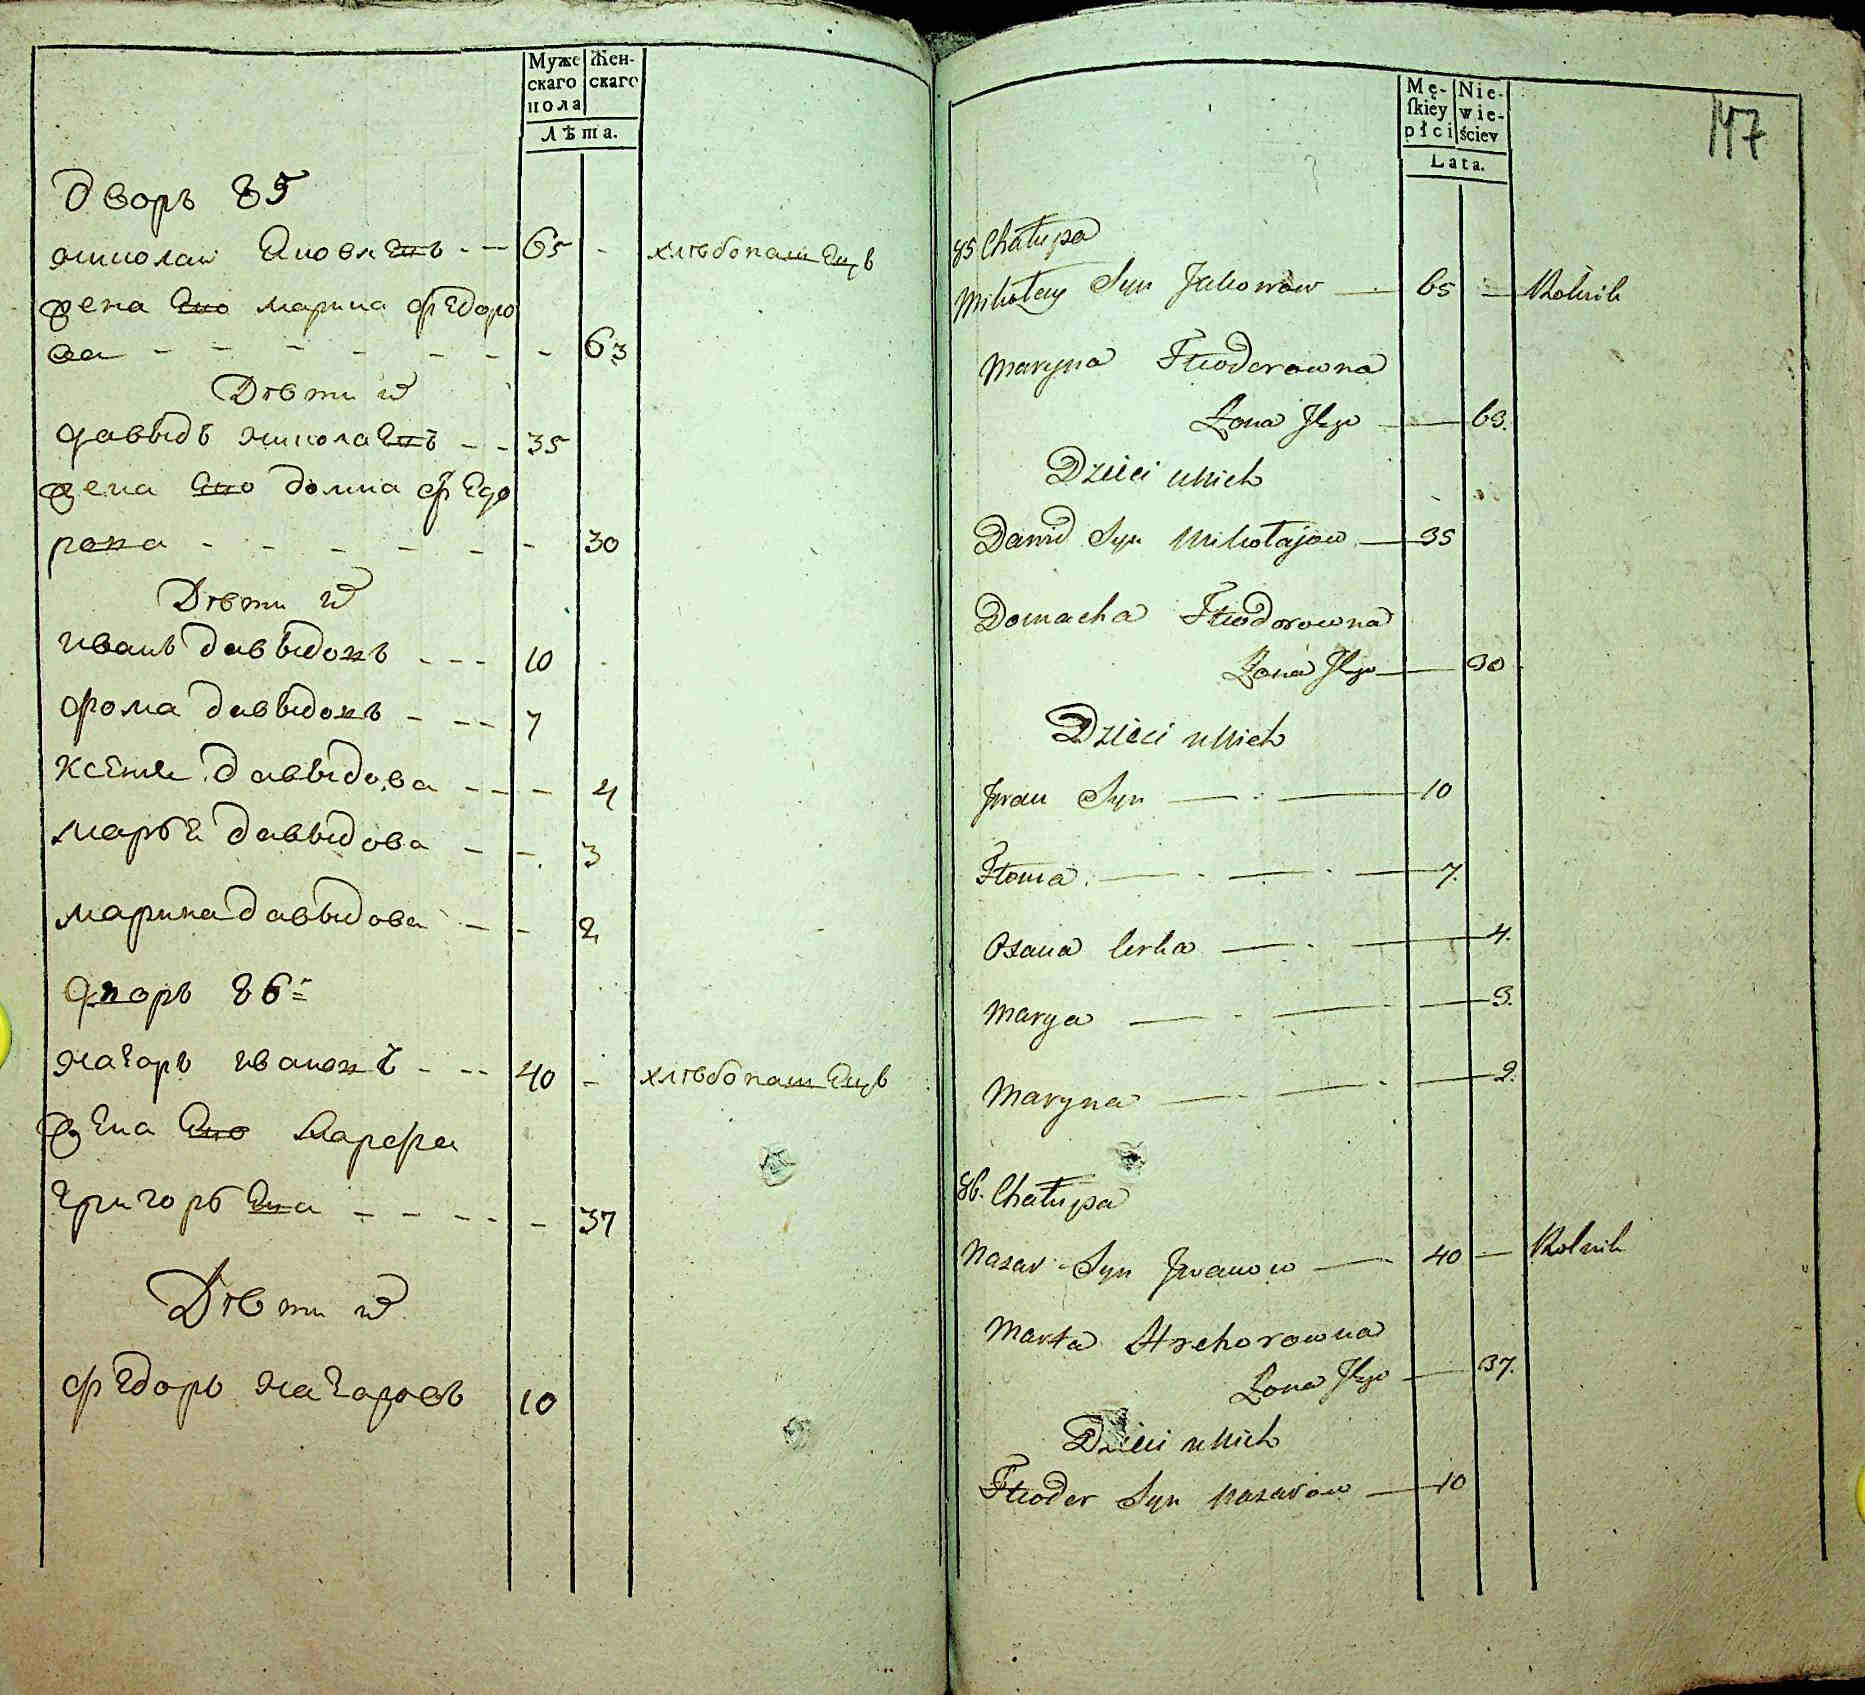 Муже
скаго
пола
Жен-
скаго
Лѣта.
дворъ 85
николаи Яковлевъ - - 65 - хлѣбопашецъ
жена Ево марина федоро
ва - - - - - - - 63
Дѣти их
давыдъ николаевъ - - 35
жена Ево домна федо
рова - - - - - - 30
Дѣти их
иванъ давыдовъ - - - 10
фома давыдовъ - - - 7
ксения давыдова - - - 4
марья давыдова - - 3
марина давыдова - - 2
дворъ 86
назаръ ивановъ - - - 40 - хлѣбопашецъ
жена Ево марфа
григорьева - - - - - 37
Дѣти их
федоръ назаровъ 10
Mę-
skiey
płci
Nie-
wie-
ściey
Lata.
147
85 Chałupa
Mikołay Syn Jakowow — 65 — Rolnik
Maryna Fteodorowna
Żona Jego — 63.
Dzieci ulich
Dawid Syn Mikołajow — 35
Domacha Fteodorowna
Żona Jego — 30
Dzieci ulich
Jwan Syn — 10
Ftoma — 7.
Oxana Corka — 4.
Marya — 3.
Maryna — 2.
86. Chałupa
Nazar Syn Jwanow — 40 — Rolnik
Marta Hrehorowna
Żona Jego — 37.
Dzieci ulich
Fteoder Syn Nazarow — 10